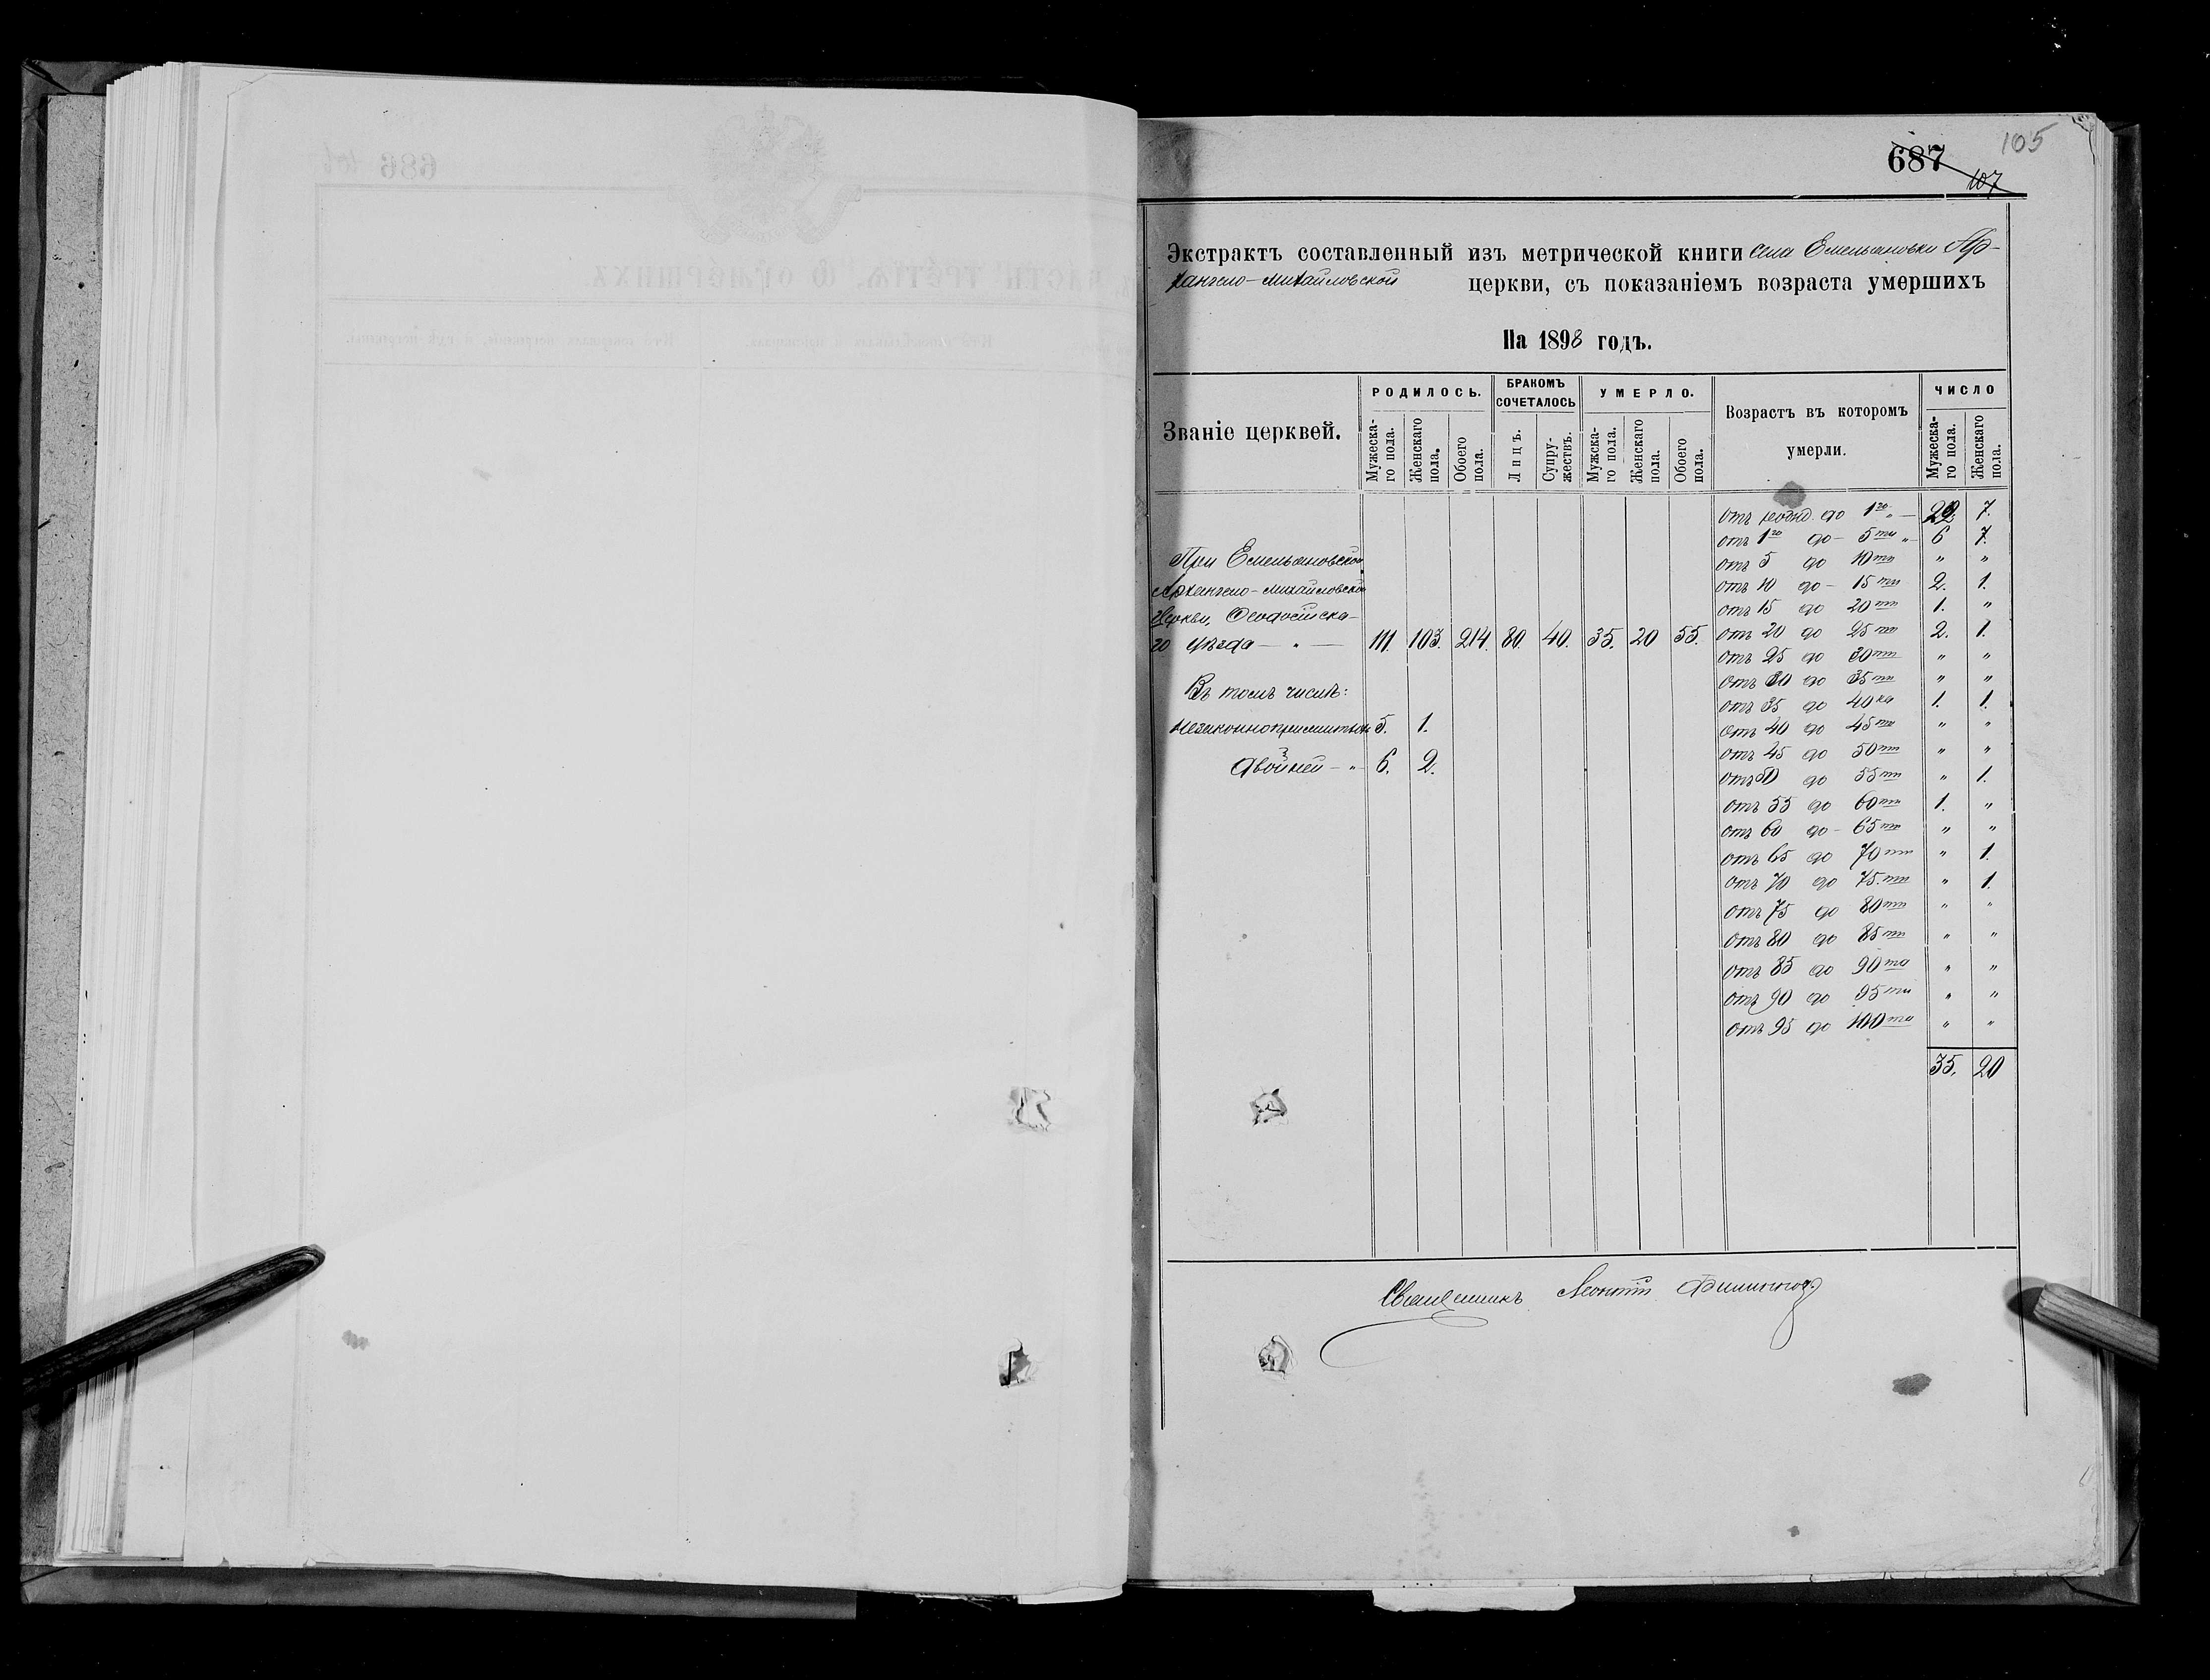 687 105
107
Экстрактъ составленный изъ метрической книги села Емельяновки Ар-
хангело-Михайловской церкви, съ показаніемъ возраста умершихъ
На 1898 годъ.
Званіе церквей. РОДИЛОСЬ. БРАКОМЪ СОЧЕТАЛОСЬ УМЕРЛО. Возрастъ въ которомъ умерли. ЧИСЛО
Мужеска-го пола. Женскаго пола. Обоего пола. Лицъ. Супру-жествъ. Мужска-го пола. Женскаго пола. Обоего пола. Мужеска-го пола. Женскаго пола.
При Емельяновской
Архангело-Михайловской
Церкви, Ѳеодосійска-
го уѣзда — " — 111. 103. 214. 80. 40. 35. 20 55.
Въ томъ числѣ:
Незаконноприжитыхъ 5. 1.
3
двойней — " 6. 2.
отъ рожд. до 1го " — 22. 7.
отъ 1го до — 5ти " 6 7.
отъ 5 до 10ти " "
отъ 10 до — 15ти 2. 1.
отъ 15 до 20ти 1. "
отъ 20 до 25ти 2. 1.
отъ 25 до 30ти " "
отъ 30 до 35ти " "
отъ 35 до 40ка 1. 1.
отъ 40 до 45ти " "
отъ 45 до 50ти " "
отъ 50 до 55ти " 1.
отъ 55 до 60ти 1. "
отъ 60 до — 65ти " "
отъ 65 до 70ти " 1.
отъ 70 до 75.ти " 1.
отъ 75 до 80ти " "
отъ 80 до 85ти " "
отъ 85 до 90та " "
отъ 90 до 95ти " "
отъ 95 до 100та " "
35. 20
Священникъ Леонтій